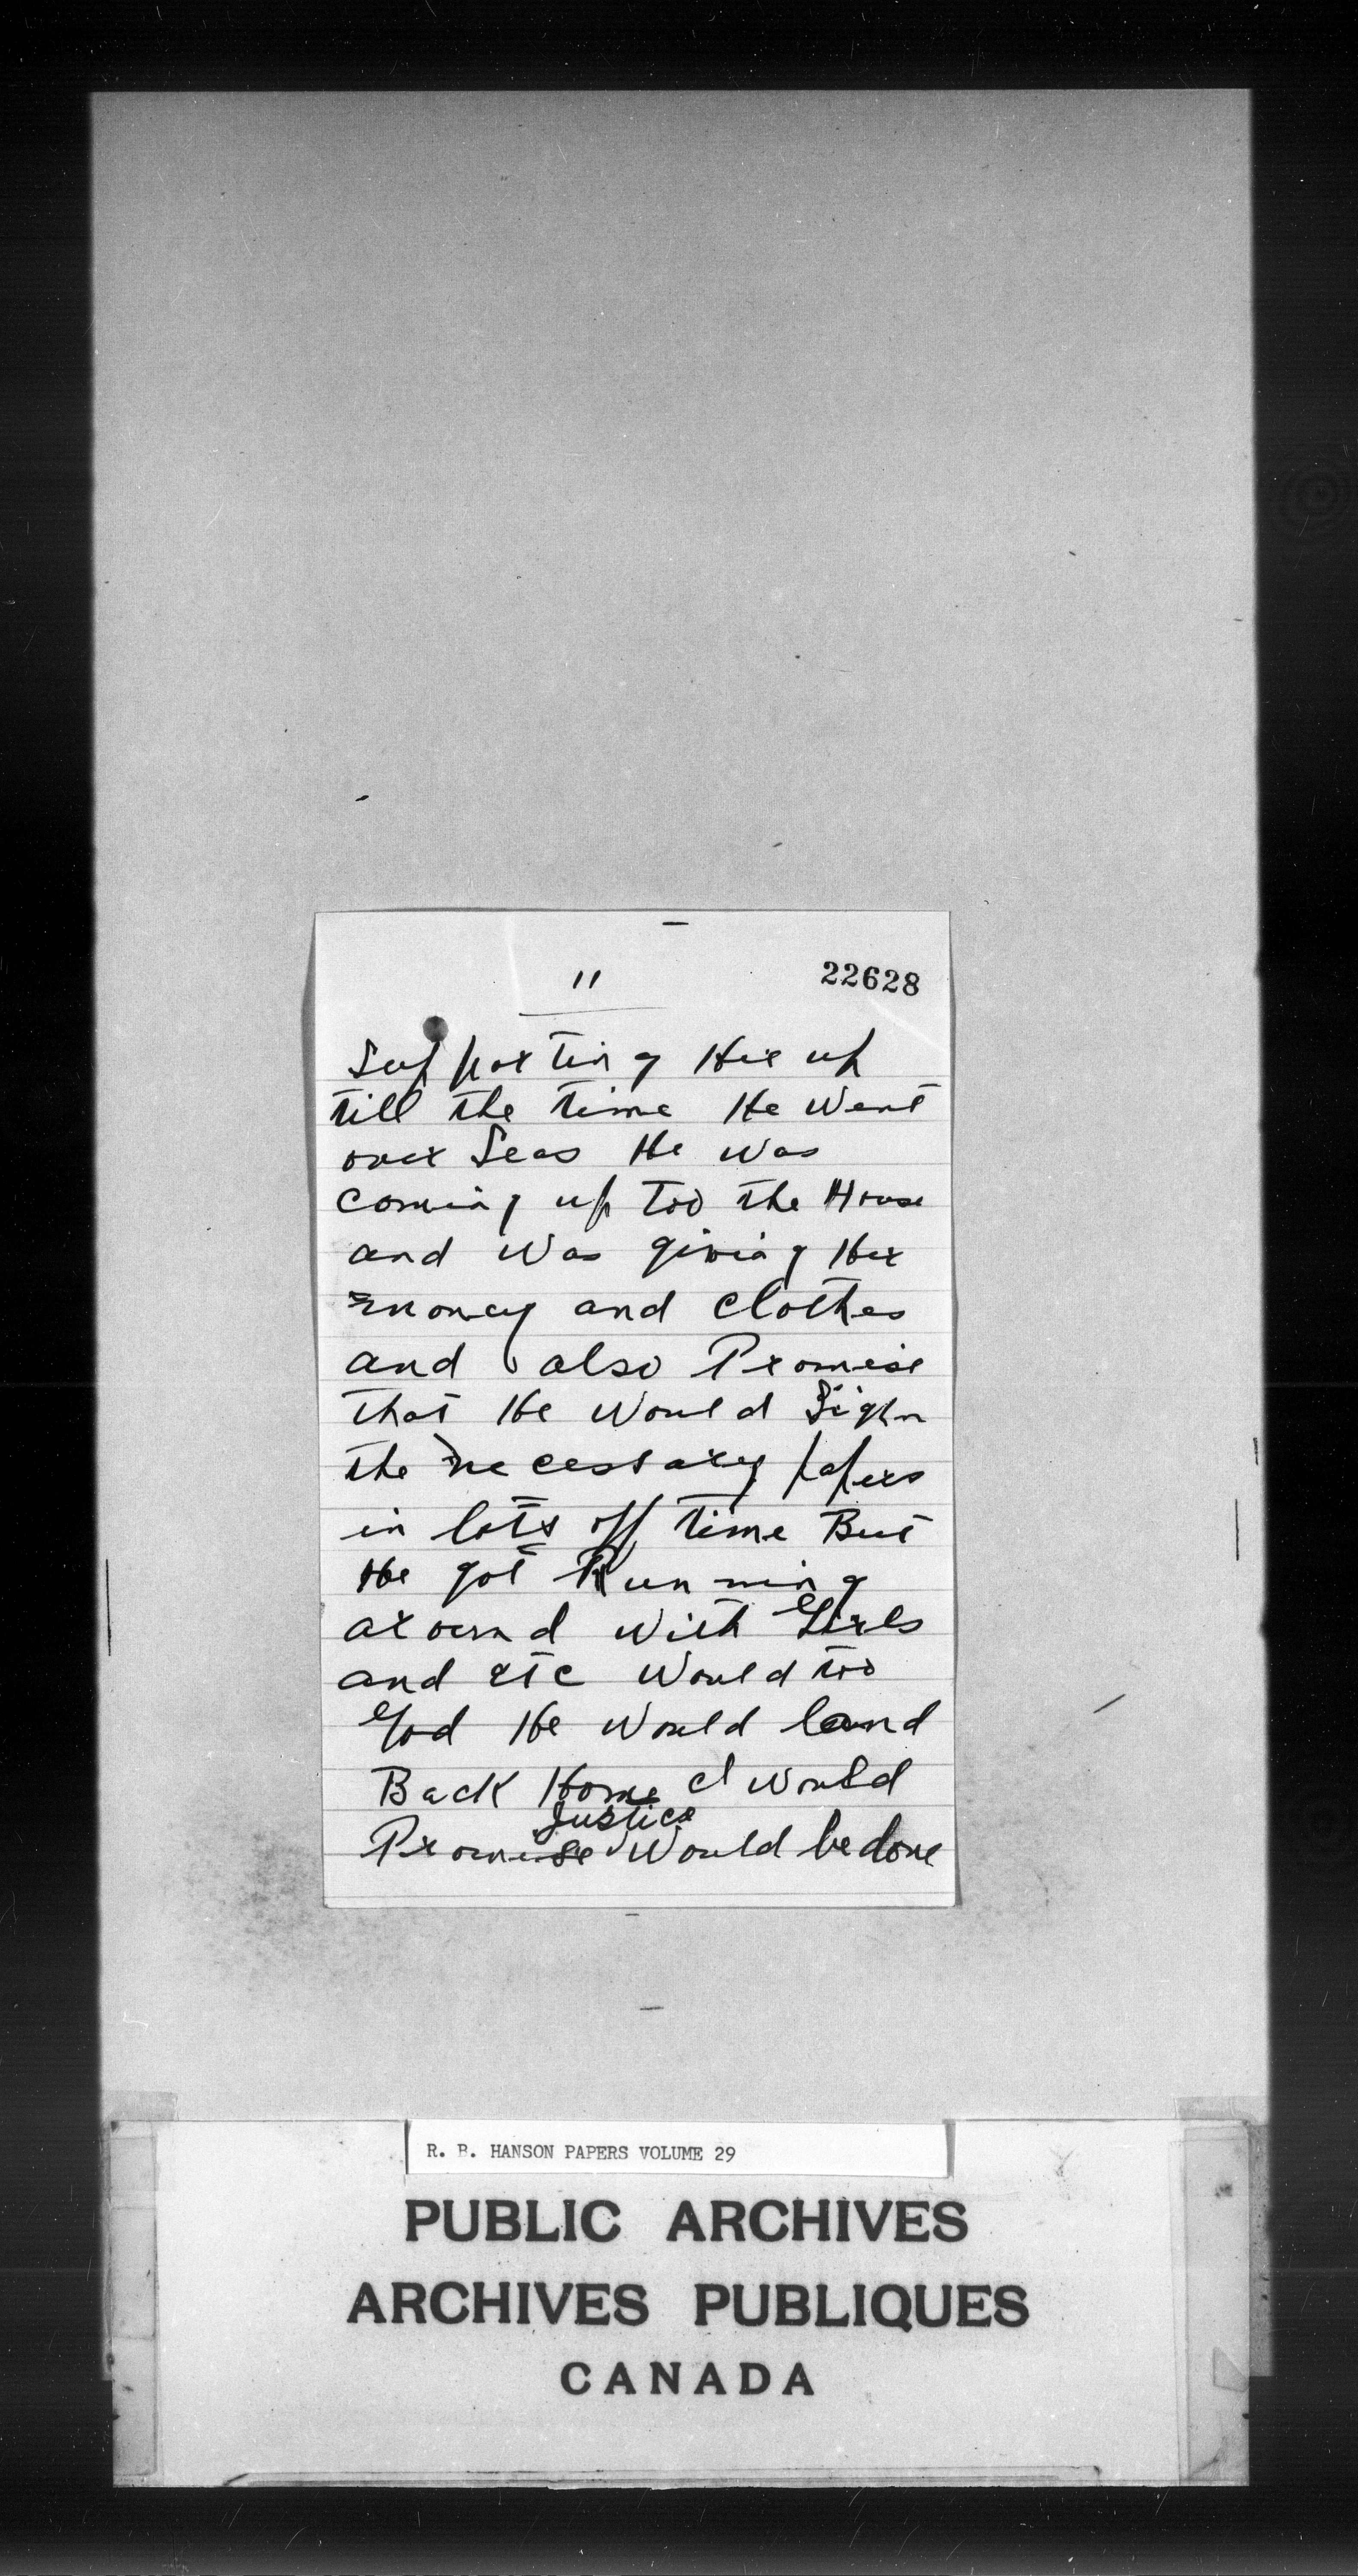 11
22628
Supporting Her up
till the time He Went
over Seas He was
coming up too the House
and was giving Her
money and clothes
and also Promise
that He would Sighn
the necessary papers
in lots off time But
He got Running
around with Girls
and etc Would too
God He would land
Back Home I would
Justice
Promise Would be done
R. B. HANSON PAPERS VOLUME 29
PUBLIC ARCHIVES
ARCHIVES PUBLIQUES
CANADA